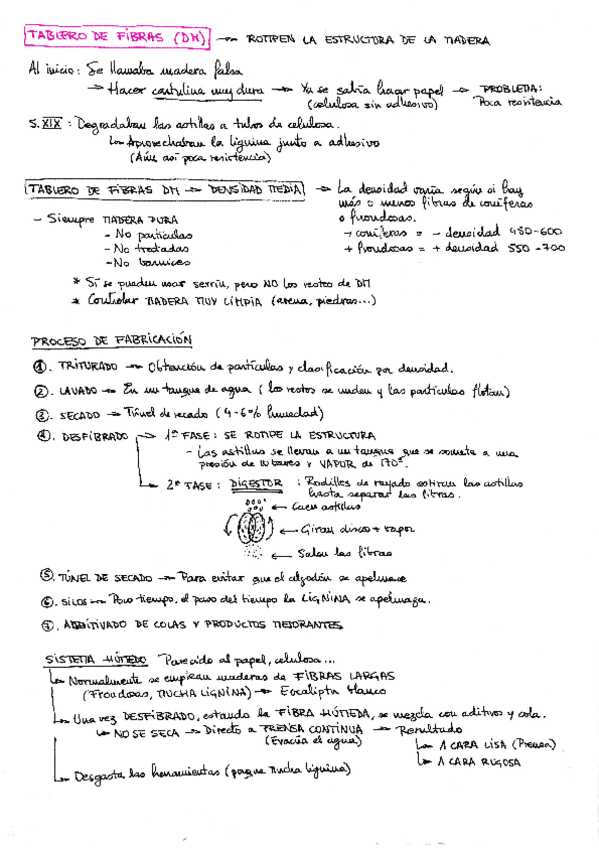 TABLERO DE FIBRAS (DM) → ROMPEN LA ESTRUCTURA DE LA MADERA
Al inicio: Se llamaba madera falsa
→ Hacer cartulina muy dura → Ya se sabía hacer papel → PROBLEMA:
(celulosa sin adhesivo) Poca resistencia
S. XIX: Degradaban las astillas a tubos de celulosa.
↳ Aprovechaban la lignina junto a adhesivo
(Aún así poca resistencia)
TABLERO DE FIBRAS DM → DENSIDAD MEDIA → La densidad varía según si hay
más o menos fibras de coníferas
o frondosas.
- Siempre MADERA PURA
- No partículas
- No tratadas
- No barnices
→ coníferas = - densidad 480-600
+ frondosas = + densidad 550-700
* Sí se pueden usar serrín, pero NO los restos de DM
* Controlar MADERA MUY LIMPIA (arena, piedras...)
PROCESO DE FABRICACIÓN
1. TRITURADO → Obtención de partículas y clasificación por densidad.
2. LAVADO → En un tanque de agua (los restos se hunden y las partículas flotan)
3. SECADO → Túnel de secado (4-6% humedad)
4. DESFIBRADO → 1ª FASE: SE ROMPE LA ESTRUCTURA
- Las astillas se llevan a un tanque que se somete a una
presión de 10 bares y VAPOR de 170º.
2ª FASE: DIGESTOR: Rodillos de rayado estiran las astillas
hasta separar las fibras.
← Caen astillas
← Giran discos + vapor
← Salen las fibras
5. TÚNEL DE SECADO → Para evitar que el algodón se apelmace
6. SILOS → Poco tiempo, el paso del tiempo la LIGNINA se apelmaza.
7. ADITIVADO DE COLAS Y PRODUCTOS MEJORANTES
SISTEMA HÚMEDO Parecido al papel, celulosa...
↳ Normalmente se emplean maderas de FIBRAS LARGAS
(Frondosas, MUCHA LIGNINA) → Eucalipto blanco
↳ Una vez DESFIBRADO, estando la FIBRA HÚMEDA, se mezcla con aditivos y cola.
↳ NO SE SECA → Directo a PRENSA CONTINUA → Resultado
(Evacúa el agua)
↳ 1 CARA LISA (Prensa)
↳ 1 CARA RUGOSA
↳ Desgasta las herramientas (porque mucha lignina)